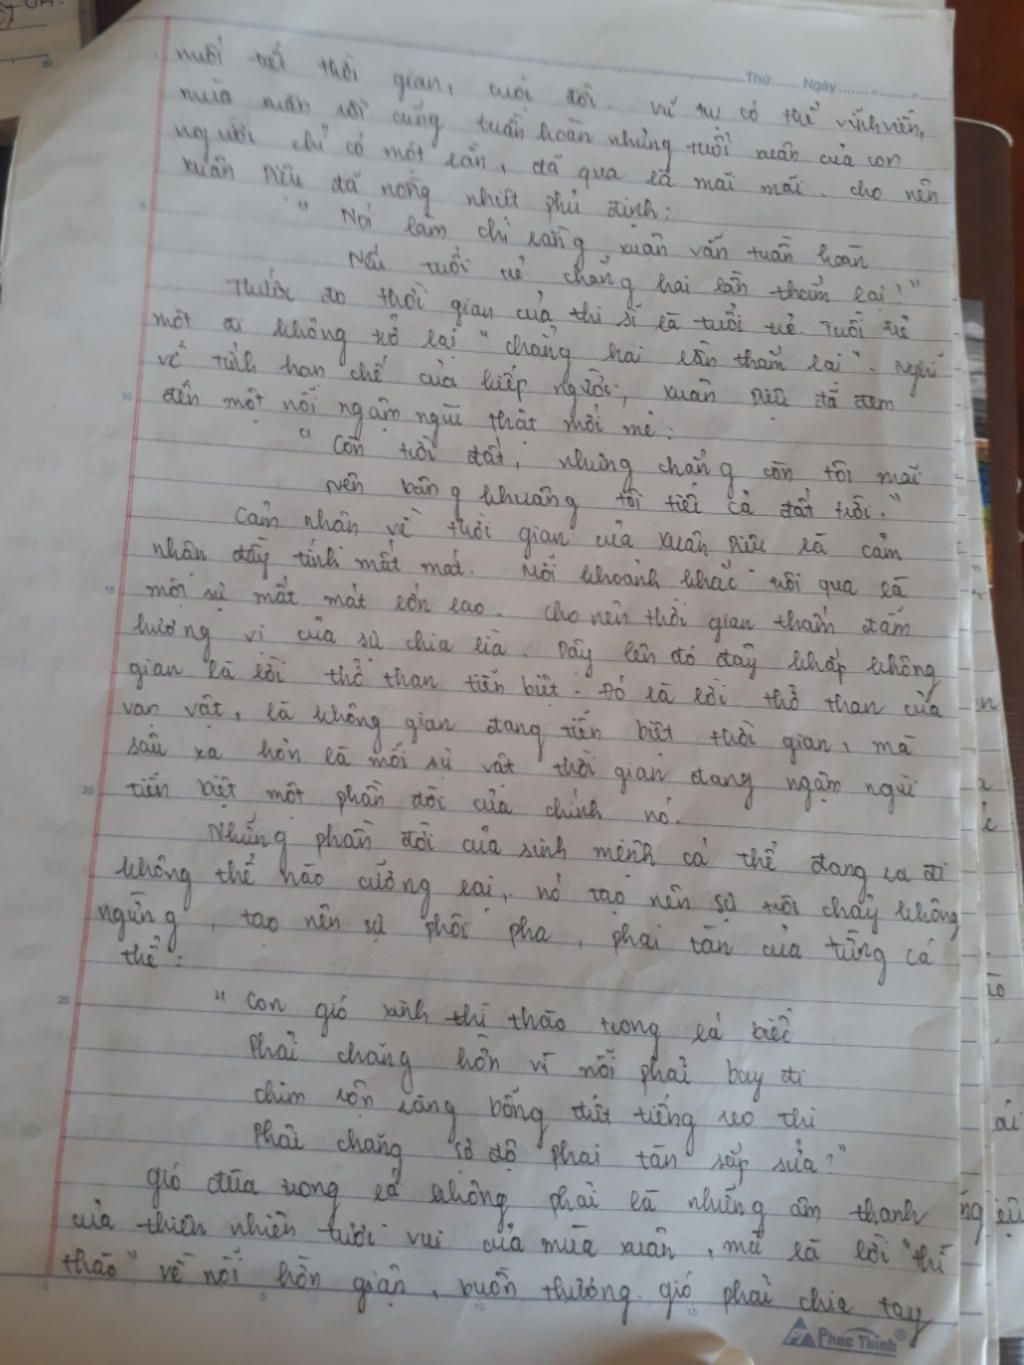 Thứ...... Ngày...... - ...... - ......
nuối tiết thời gian, cuối đời. Vũ trụ có thể vĩnh viễn,
mùa xuân rồi cũng tuần hoàn nhưng tuổi xuân của con
người chỉ có một lần, đã qua là mãi mãi. cho nên
xuân Diệu đã nồng nhiệt phủ định:
" Nói làm chi rằng xuân vẫn tuần hoàn
Nếu tuổi trẻ chẳng hai lần thắm lại!"
Thước đo thời gian của thi sĩ là tuổi trẻ. Tuổi trẻ
một đi không trở lại "chẳng hai lần thắm lại". Nghĩ
về tính hạn chế của kiếp người, xuân Diệu đã đem
đến một nỗi ngậm ngùi thật mới mẻ:
" Còn trời đất, nhưng chẳng còn tôi mãi
Nên bâng khuâng tôi tiếc cả đất trời."
Cảm nhận về thời gian của xuân Diệu là cảm
nhận đầy tính mất mát. Mỗi khoảnh khắc trôi qua là
một sự mất mát lớn lao. Cho nên thời gian thấm đẫm
hương vị của sự chia lìa. Dấy lên đó đây khắp không
gian là lời thở than tiễn biệt. Đó là lời thở than của
vạn vật, là không gian đang tiễn biệt thời gian, mà
sâu xa hơn là mỗi sự vật thời gian đang ngậm ngùi
tiễn biệt một phần đời của chính nó.
Những phần đời của sinh mệnh cá thể đang ra đi
không thể nào cưỡng lại, nó tạo nên sự trôi chảy không
ngừng, tạo nên sự phôi pha, phai tàn của từng cá
thể:
" Con gió xinh thì thào trong lá biếc
Phải chăng hờn vì nỗi phải bay đi
chim rộn ràng bỗng đứt tiếng reo thi
Phải chăng sợ độ phai tàn sắp sửa?"
gió đùa trong lá không phải là những âm thanh
của thiên nhiên tươi vui của mùa xuân, mà là lời "thì
thào" về nỗi hờn giận, buồn thương. gió phải chia tay
Phuc Thinh®